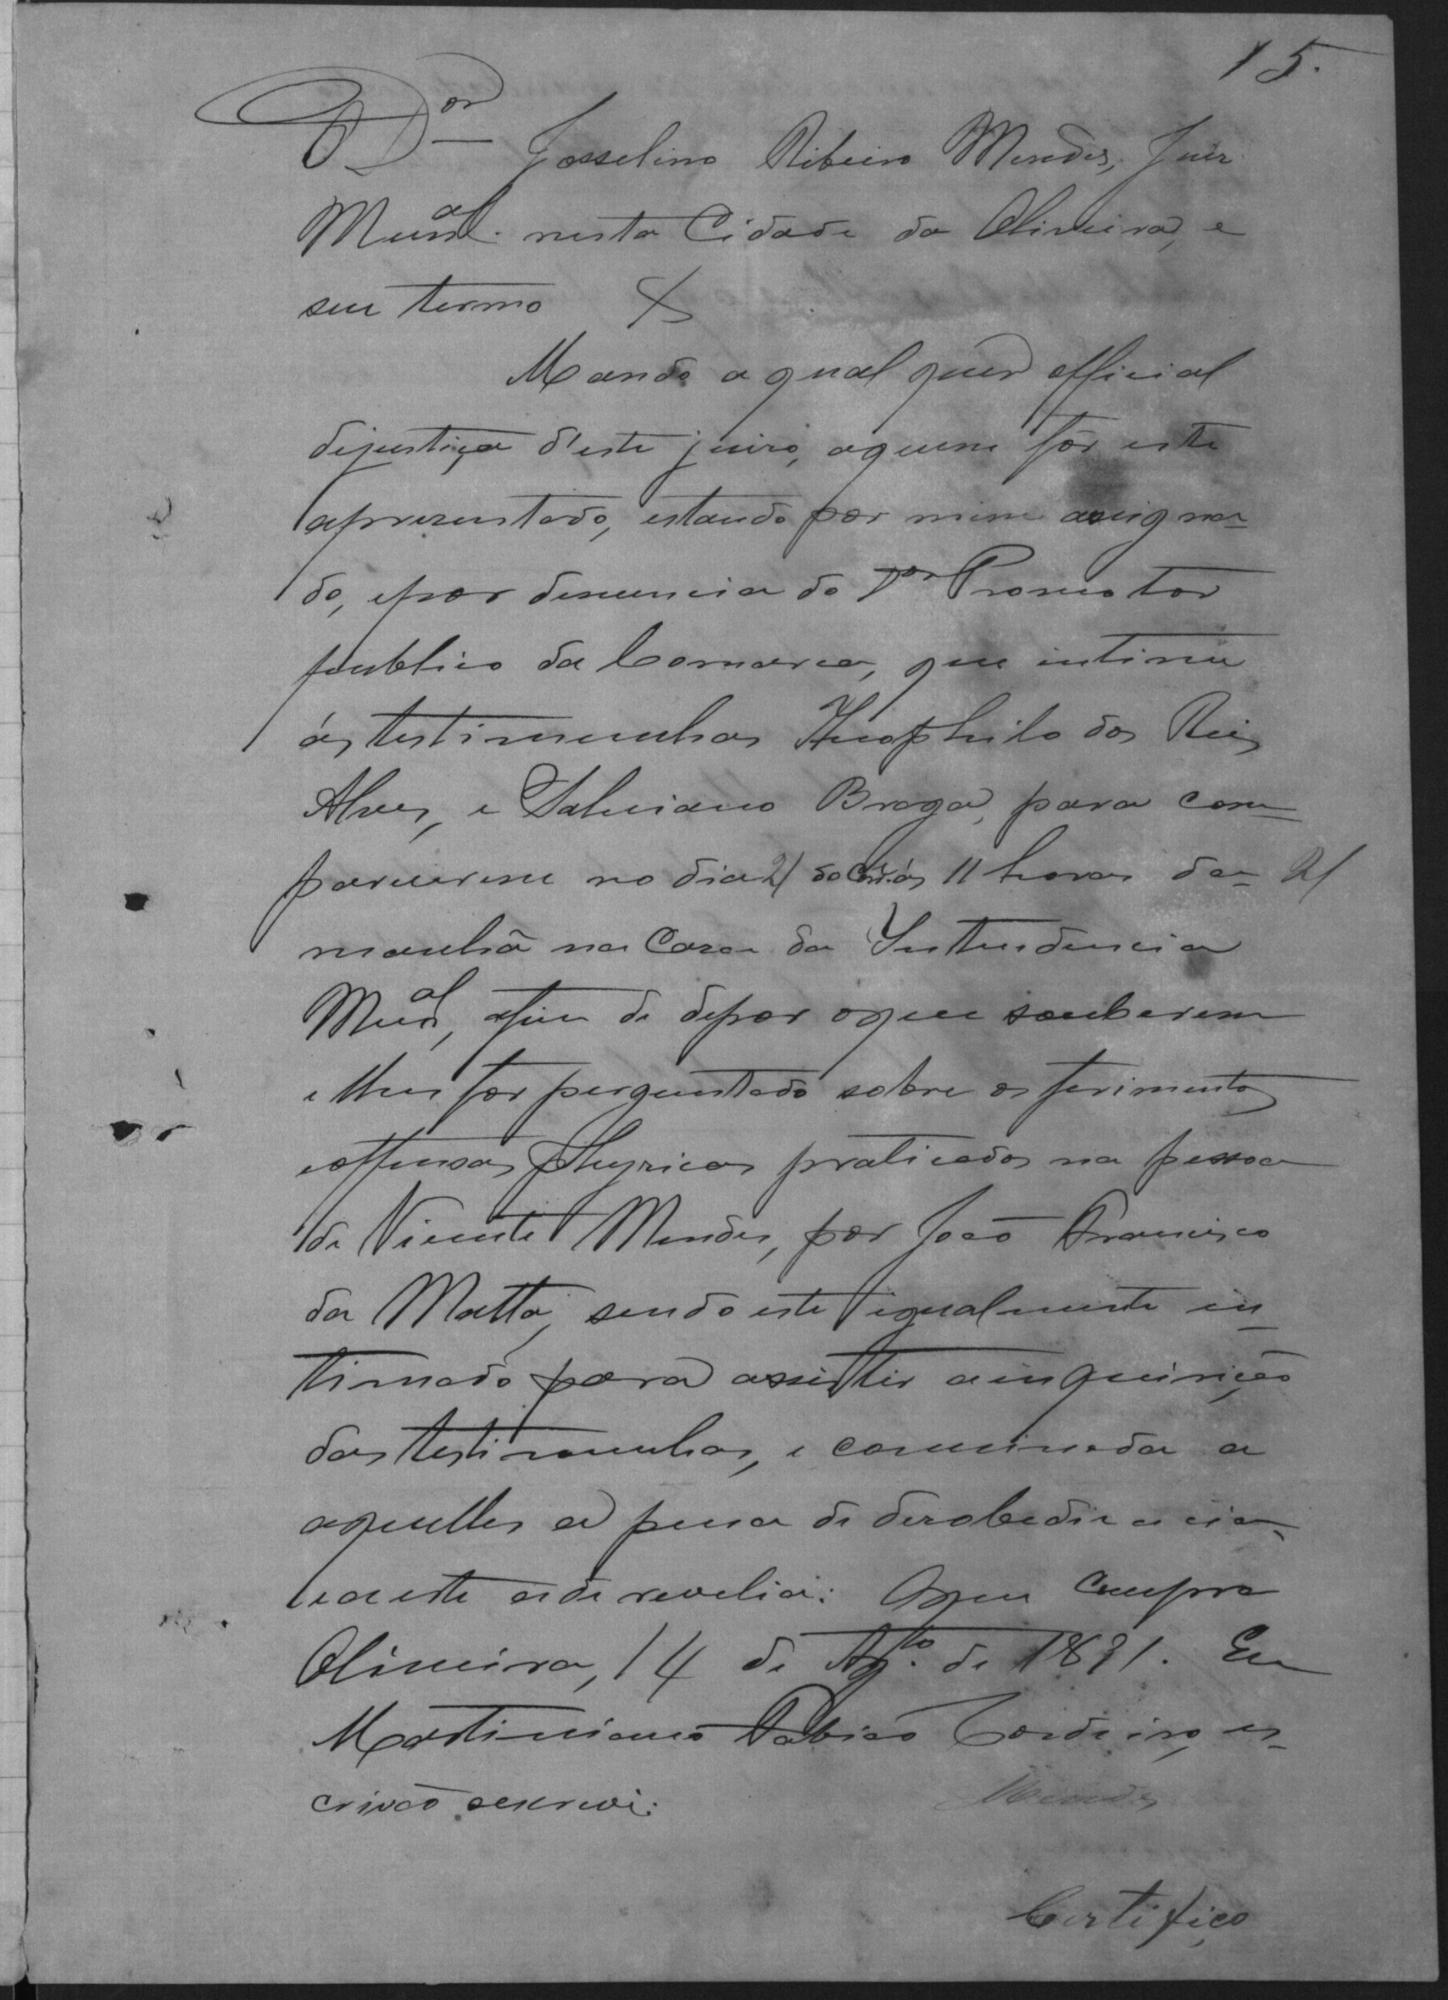 15.
O Dor Josselino Ribeiro Mendes, Juiz
Munal. nesta Cidade da Oliveira, e
seu termo &
Mando a qual quer official
dejustiça d'este juizo, aquem fôr este
apresentado, estando por mim assigna-
do, epor denuncia do Dor Promotor
publico da Comarca, que intime
ás testimunhas Theophilo dos Reis
Alves, e Salviano Braga, para com-
parecerem no dia 21 do Cor. ás 11 horas da 21
manhã na Casa da Intendencia
Munal, afim de depor oque souberem
e lhes for perguntado sobre os ferimentos
eoffensas physicas praticados na pessoa
de Vicente Mendes, por João Francisco
da Matta, sendo este igualmente in-
timado para assistir a inquirição
das testimunhas, e cominada a
aquelles a pena de desobediencia,
e a este a de revelia: Oque Cumpra
Oliveira, 14 de Agto. de 1891. Eu
Martiniano Fabião Cordeiro, es-
crivão escrevi:
Mendes
Certifico